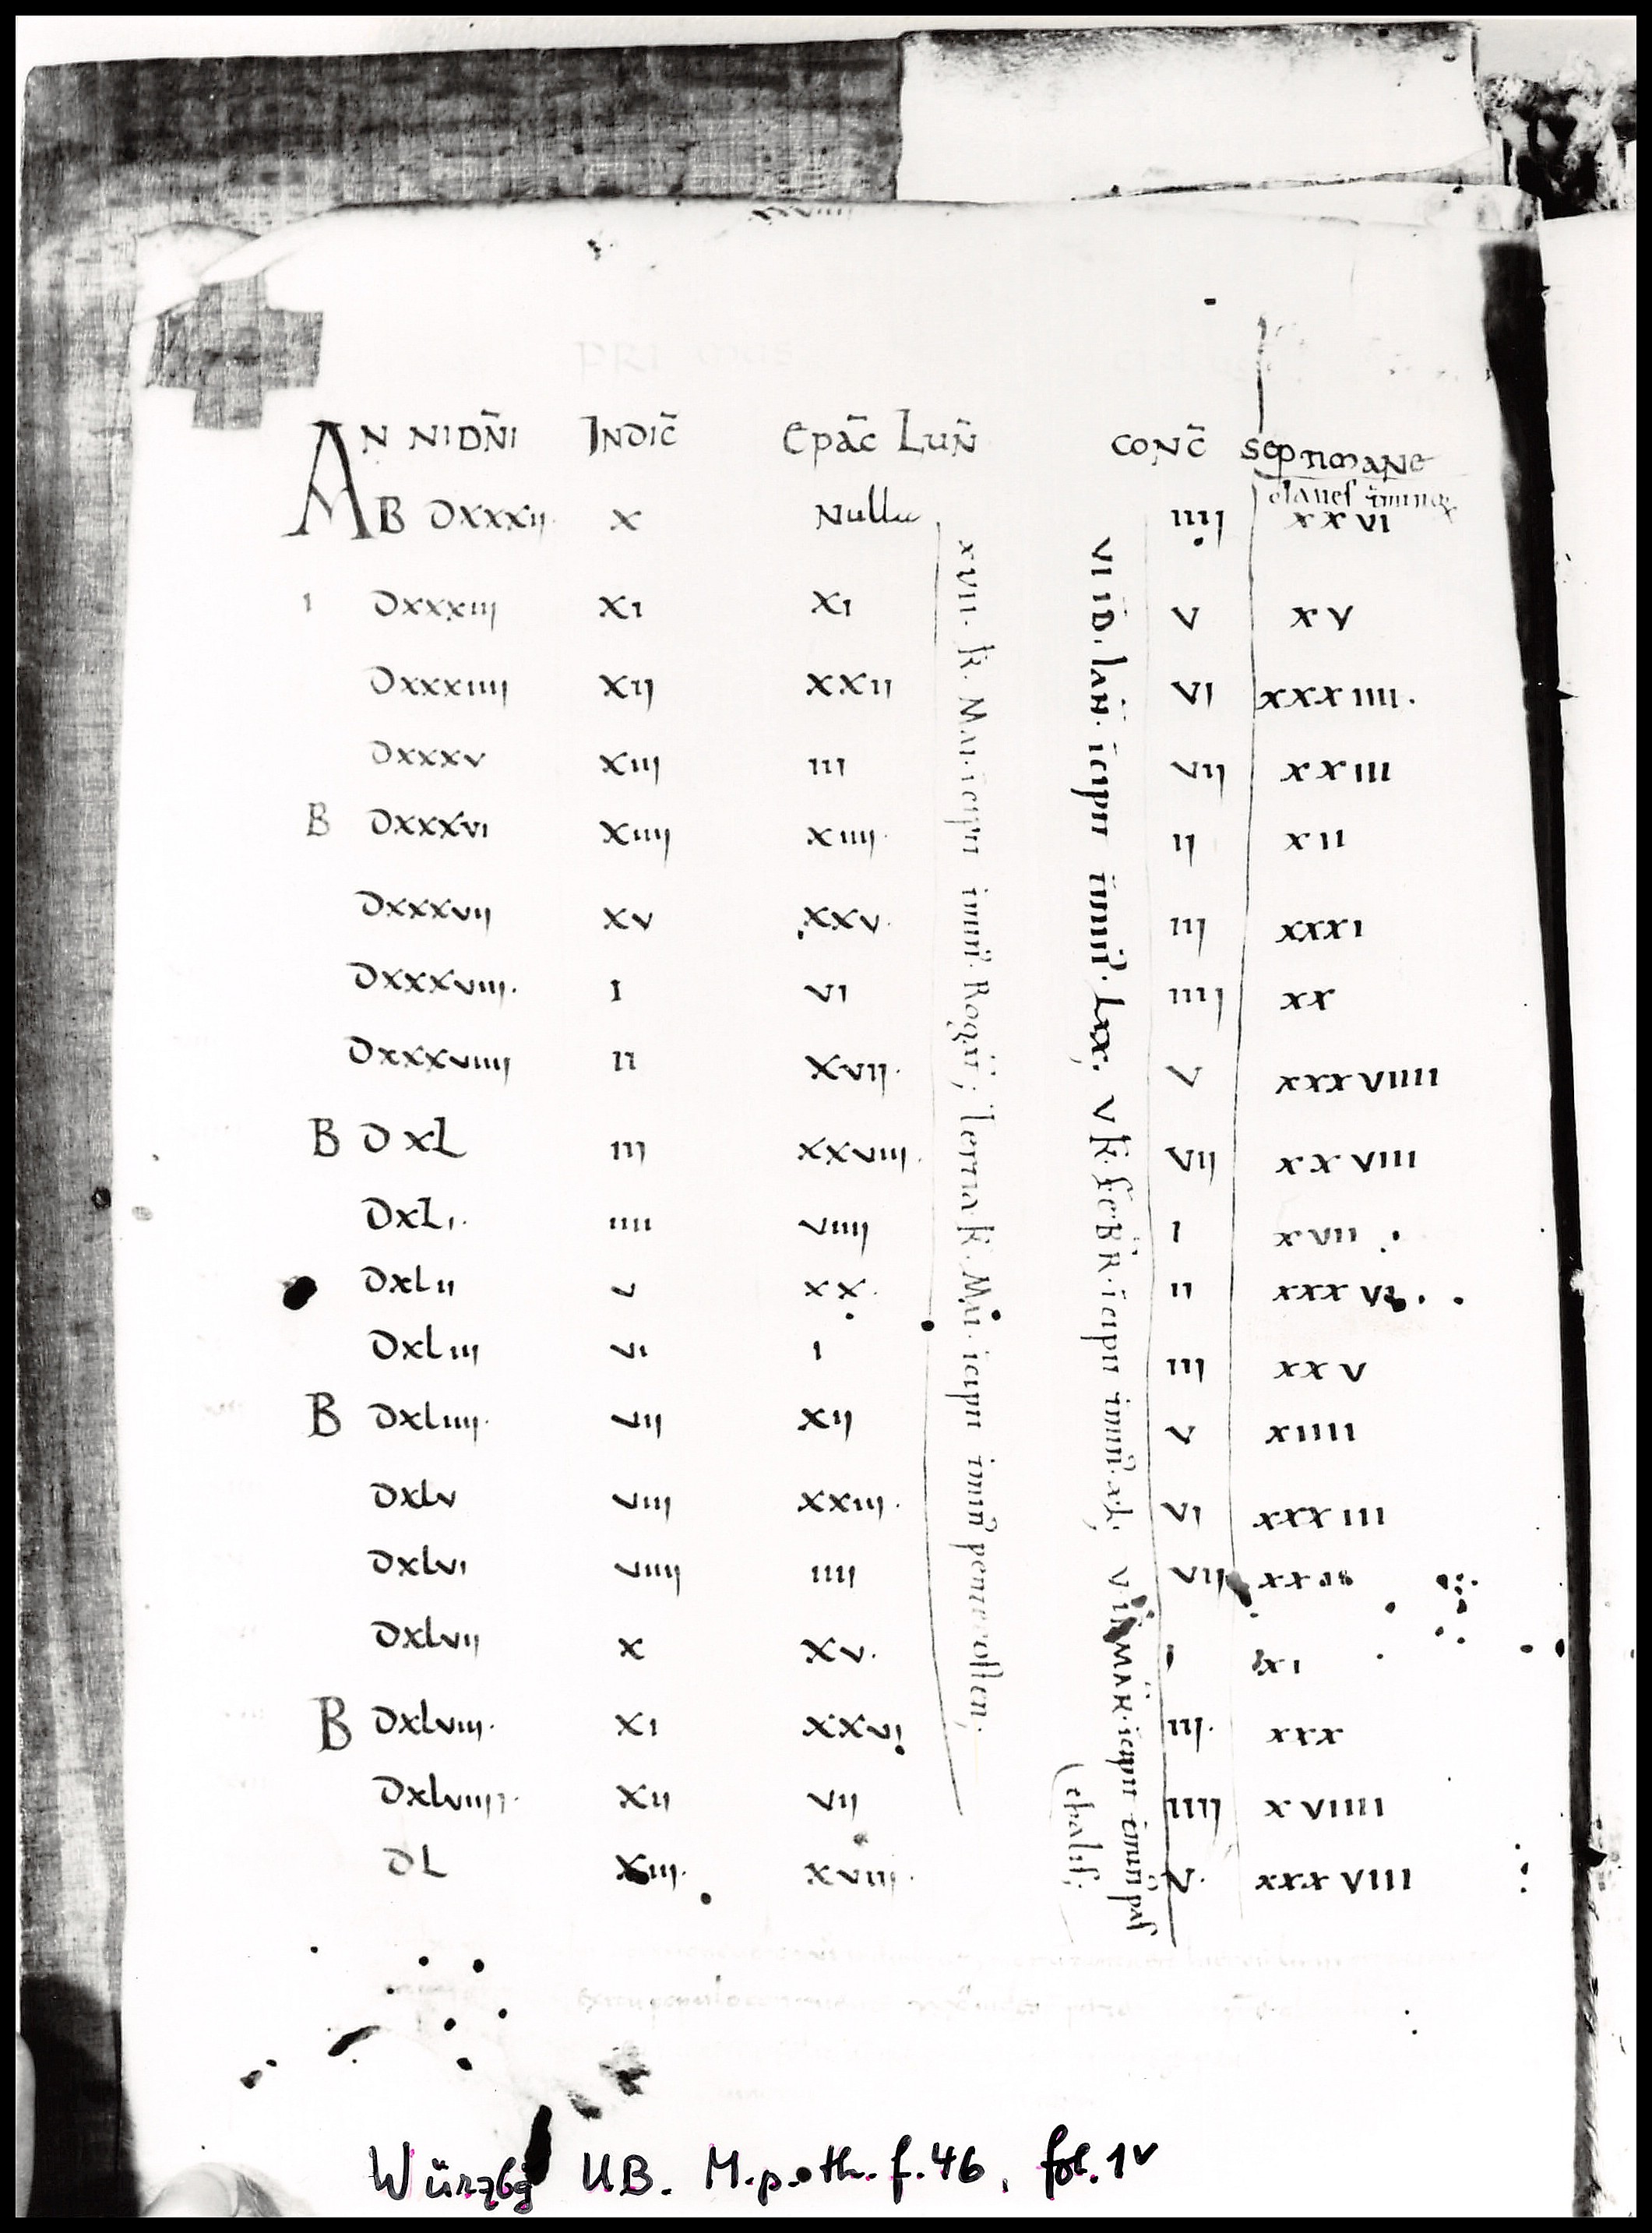 ANNI DN̄I INDIC̄ Epāc Luñ CONC̄ septimane
claues
B DXXXII X Nulla IIII XXVI
I DXXXIII XI XI V XV
DXXXIIII XII XXII VI XXXIIII.
DXXXV XIII III VII XXIII
B DXXXVI XIIII XIIII. II XII
DXXXVII XV XXV. III XXXI
DXXXVIII. I VI IIII XX
DXXXVIIII II XVII. V XXXVIIII
B DXL III XXVIII. VII XXVIII
DXLI. IIII VIIII I XVII
DXLII V XX. II XXXVI
DXLIII VI I III XXV
B DXLIIII. VII XII V XIIII
DXLV VIII XXIII. VI XXXIII
DXLVI VIIII IIII VII
DXLVII X XV. I XI
B DXLVIII. XI XXVI III. XXX
DXLVIIII. XII VII IIII XVIIII
DL XIII. XVIII. V. XXXVIII
XVII. K. Mai. icipit
K. Mai. icipit
VI ID. IAN. icipit LXX. V K. FEBR. icipit
MAR. icipit pas
chalis;
Würzbg UB. M.p.th.f.46, fol.1v